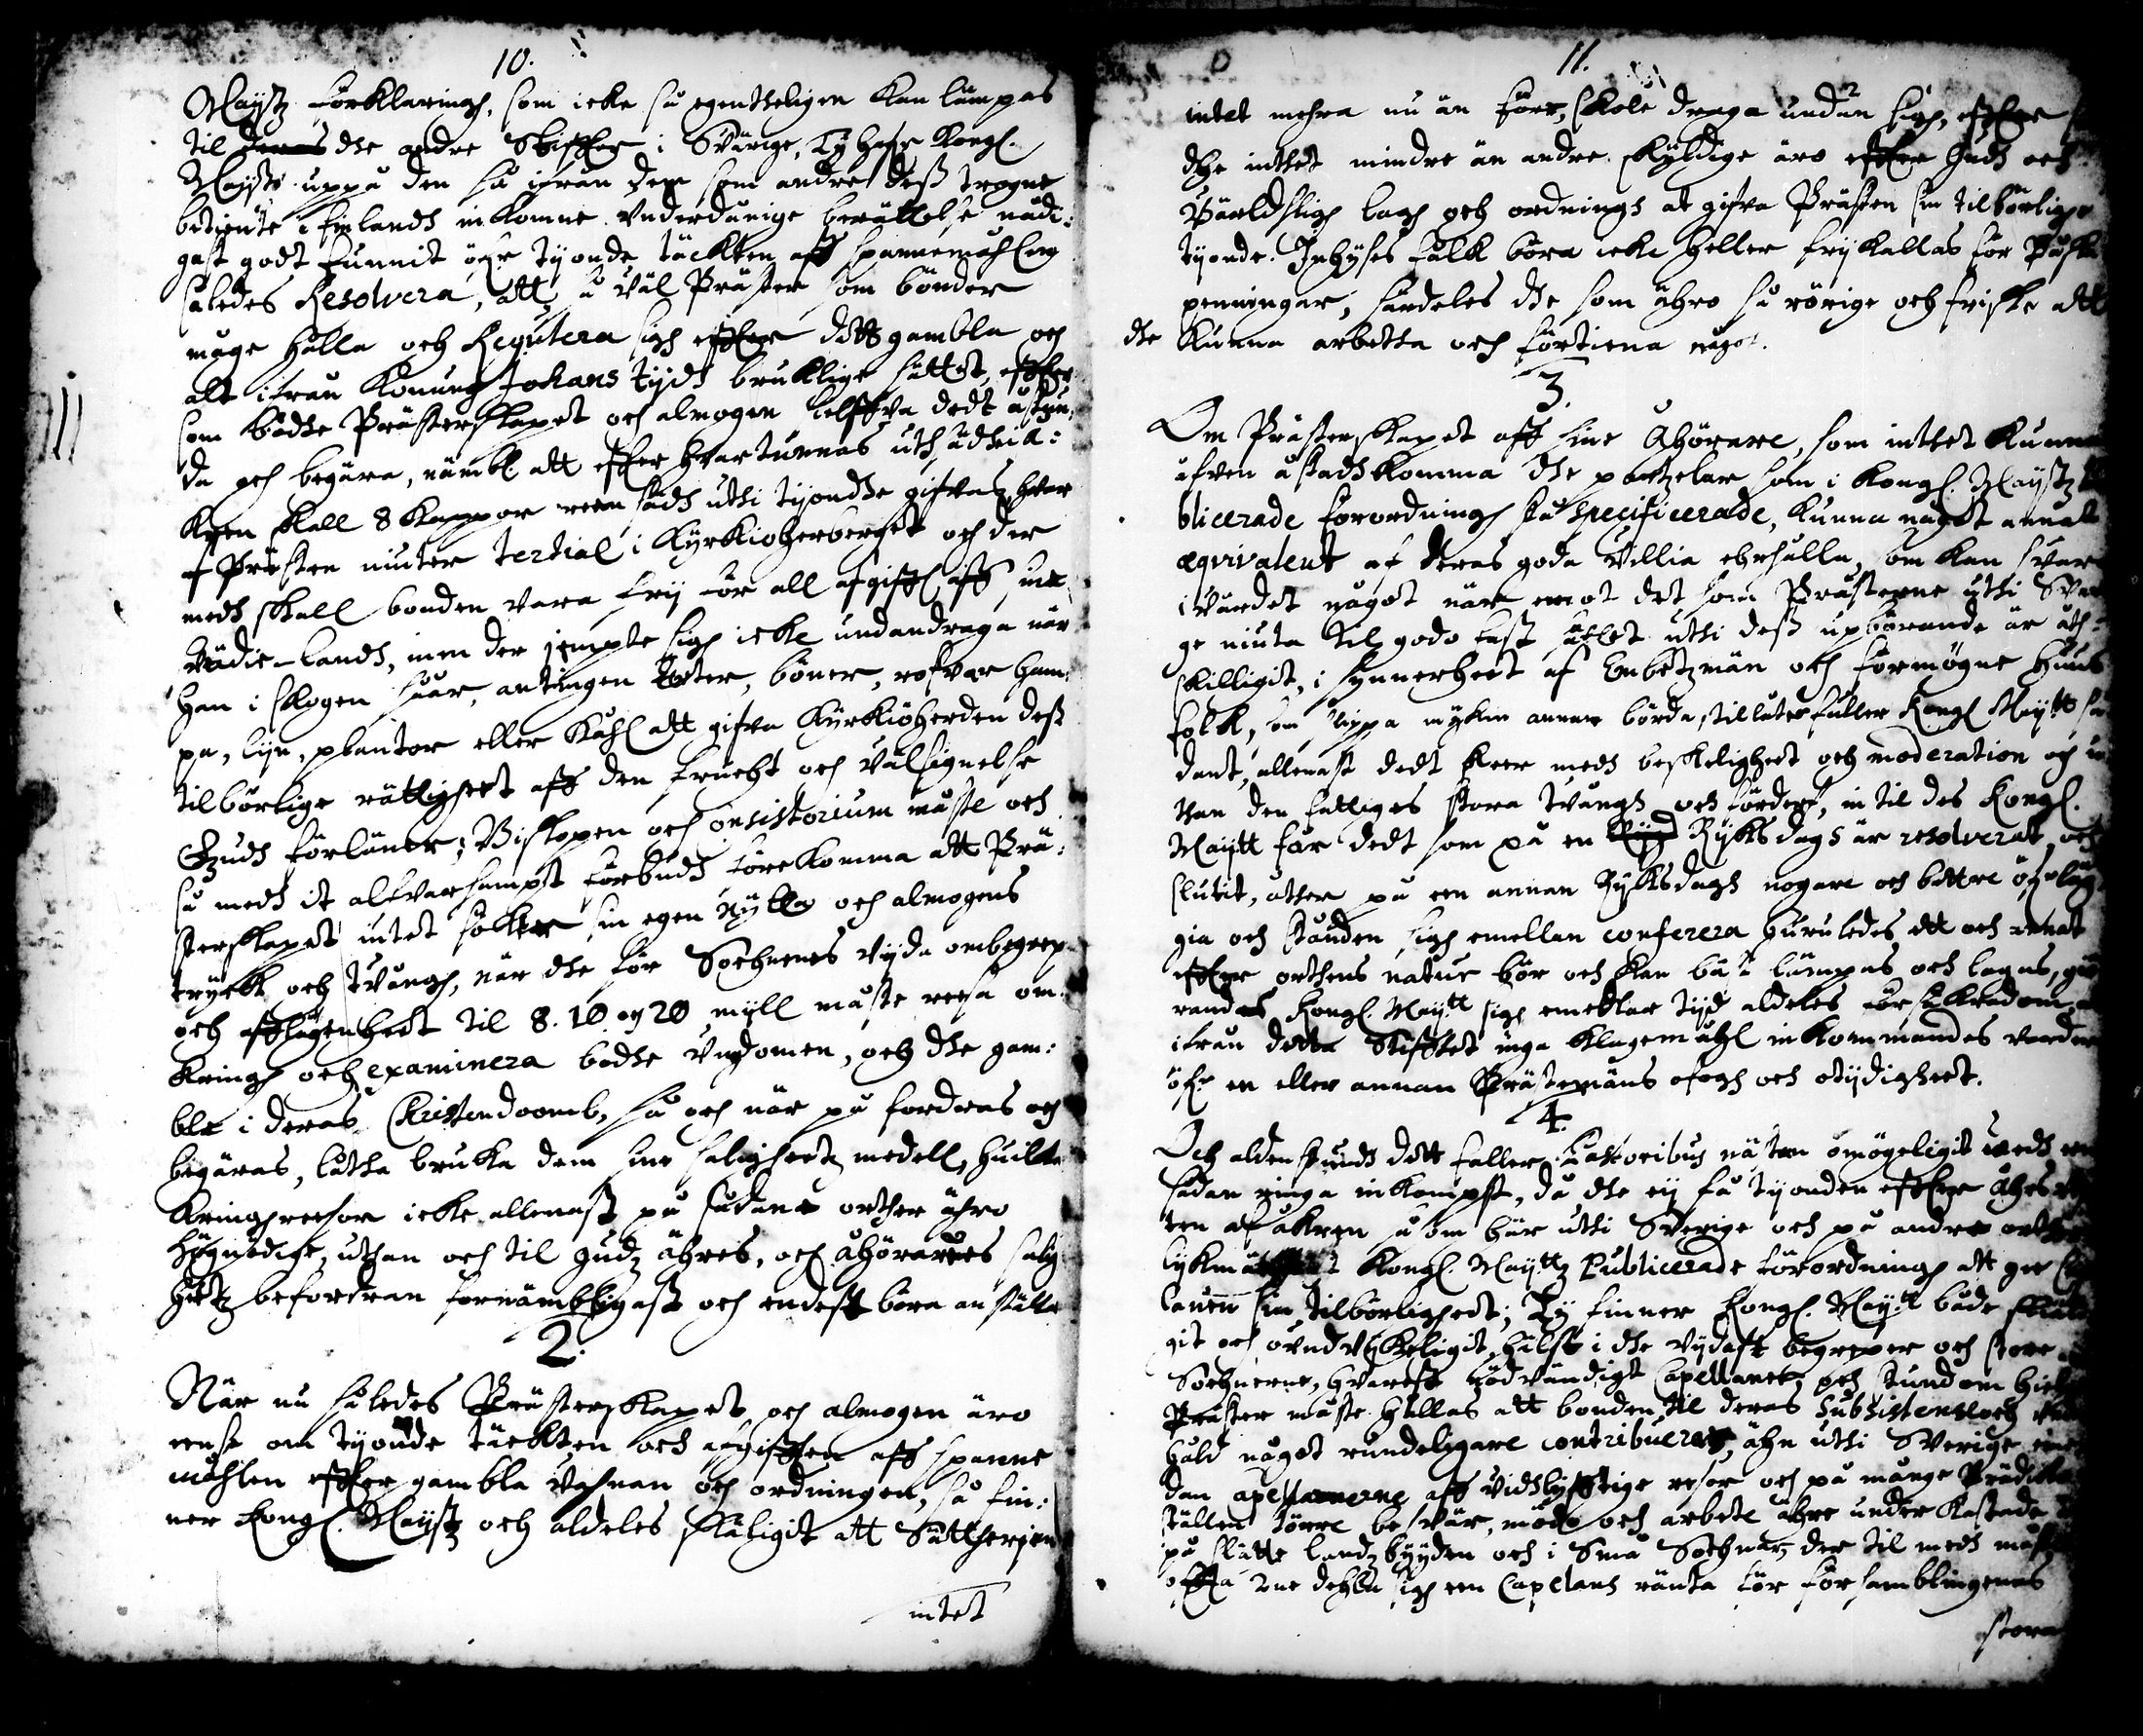 10.
Maystz förklaringh, som icke så egentheligen kan lämpas
til deras dhe andre Stiffter i Swärige, Ty hafr Kongl.
Maystt uppå den så ifrån dem som andre deß trogne
betiente i finlandh inkomne underdånige berättelse nådi:
gast godt funnit öfr tyonde täckten aff spannemåhlen
således Resolvera, att så wäl Präster som bönder
måge hålla och Regulera sigh effter dett gambla och
alt ifrån Konung Johans tijdh bruklige sättet, effter
som bådhe Prästerskapet och almogen sielffva dedt åstun:
da och begära, nämbl. att effter hvar tunnas uthsädhie
skall 8 kappor reen sädh uthi tijondhe gifvas, hvar
af Prästen niuter tertial i Kyrkioherberget och der
medh skall bonden vara frij för all afgifft aff
Swidie-landh, men der jempte sigh icke undandraga när
han i skogen såår, antingen ärter, böner, rofvor ham:
pa, lijn, plantor eller kåhl att gifva Kyrkioherden deß
tilbörlige rättigheet aff den frucht och välsignelse
Gudh förläner; Biskopen och Consistorium måste och
så medh it alfvarsampt förbudh förekomma att Prä:
sterskapet intet söker sin egen nytta och almogens
tryck och tvångh, när dhe för Sochnenes vijda ombegrep
och afflägenheet til 8. 10 och 20 myll måste reesa om:
kringh och examinera bådhe Ungdomen, och dhe gam:
ble i deras Christendoomb, så och när på fordras och
begäras, låtha bruka dem sine saligheetz medell, huilka
kringhreesor icke allenast på sådane orther ähro
högnödige, uthan och til Gudz ähres, och åhörarenes salig
heetz befordran förnämbligast och endest böra anställas
2.
När nu således Prästerskapet och almogen äro
eense om tyonde täckten och afgifften aff spanne
måhlen effter gambla vahnan och ordningen, så fin:
ner Kongl. Maystz och aldeles skäligit att Sätthesjen
intet
11.
intet mehra nu än förr, skole draga undan sigh, effter
dhe inthet mindre än andre skyldige äro effter Gudz och
Wärldsligh lagh och ordningh at gifva Prästen sin tilbörlige
tyonde. Inhyses fålk böra icke heller frij kallas för Påska
penningar, särdeles dhe som ähro så rörige och friske att
dhe kunna arbetha och förtiena något.
3.
Om Prästerskapet aff sine Åhörare, som inthet kunna
äfven åstadhkomma dhe partzelar som i Kongl. Maystz
blicerade förordningh stå specificerade, kunna något annat
æqvivalent af deras goda villia ehrhålla, som kan svara
i värdet något när emot det som Prästerne uthi Swe
ge niuta til godo fast uthi deß upbörande är åth:
skilligit, i synnerheet af Embetzmän och förmögne huus
folk, som slippa mykin annan börda, tillåter fuller Kongl. Maytt så
dant, allenast dedt skeer medh beskeligheet och moderation och u
than den fattiges stora tvångh och fördert, in til des Kongl.
Maytt får dedt som på en Ryksdagh är resolverat och
slutit, åther på een annan Ryksdagh nogare och bättre öfverläg
gia och ständen sigh emellan conferera huruledes ett och annat
effter orthens natur bör och kan bäst lämpas och lagas,
randes Kongl. Maytt sigh emedlar tijd aldeles försäkrad om
ifrån detta Stifftet inga klagemåhl inkommandes varder
öfr en eller annan Prästemäns ofogh och otijdigheet.
4.
Och aldenstundh dett faller Pastoribus nästan omögeligit medh een
sådan ringa inkompst, då dhe eij få tyonden effter
ten af åkren såsom här uthi Sverige och på andre orther
lykmätigt Kongl. Mayttz Publicerade förordningh att ge Ca
lanen sin tilbörligheet; Ty finner Kongl. Maytt både skiäli
git och oundvykeligit, hälst i dhe vydast begreper och store
Sochnerne, hvarest nödvändigt Capellaner, och stundom hielp
Präster måste hållas att bonden til deras Subsistens och under
håld något rundeligare contribuerar, ähn uthi Sverige,
dan Capellanerne aff vidhlyfftige resor och på många Prädike
ställen större besvär, möda och arbete ähre under kastade
på slätte landzbyyden och i små Sochnar, der til medh måste
offta 2ne dehla sigh een Capelans ränta för församblingenes
stora